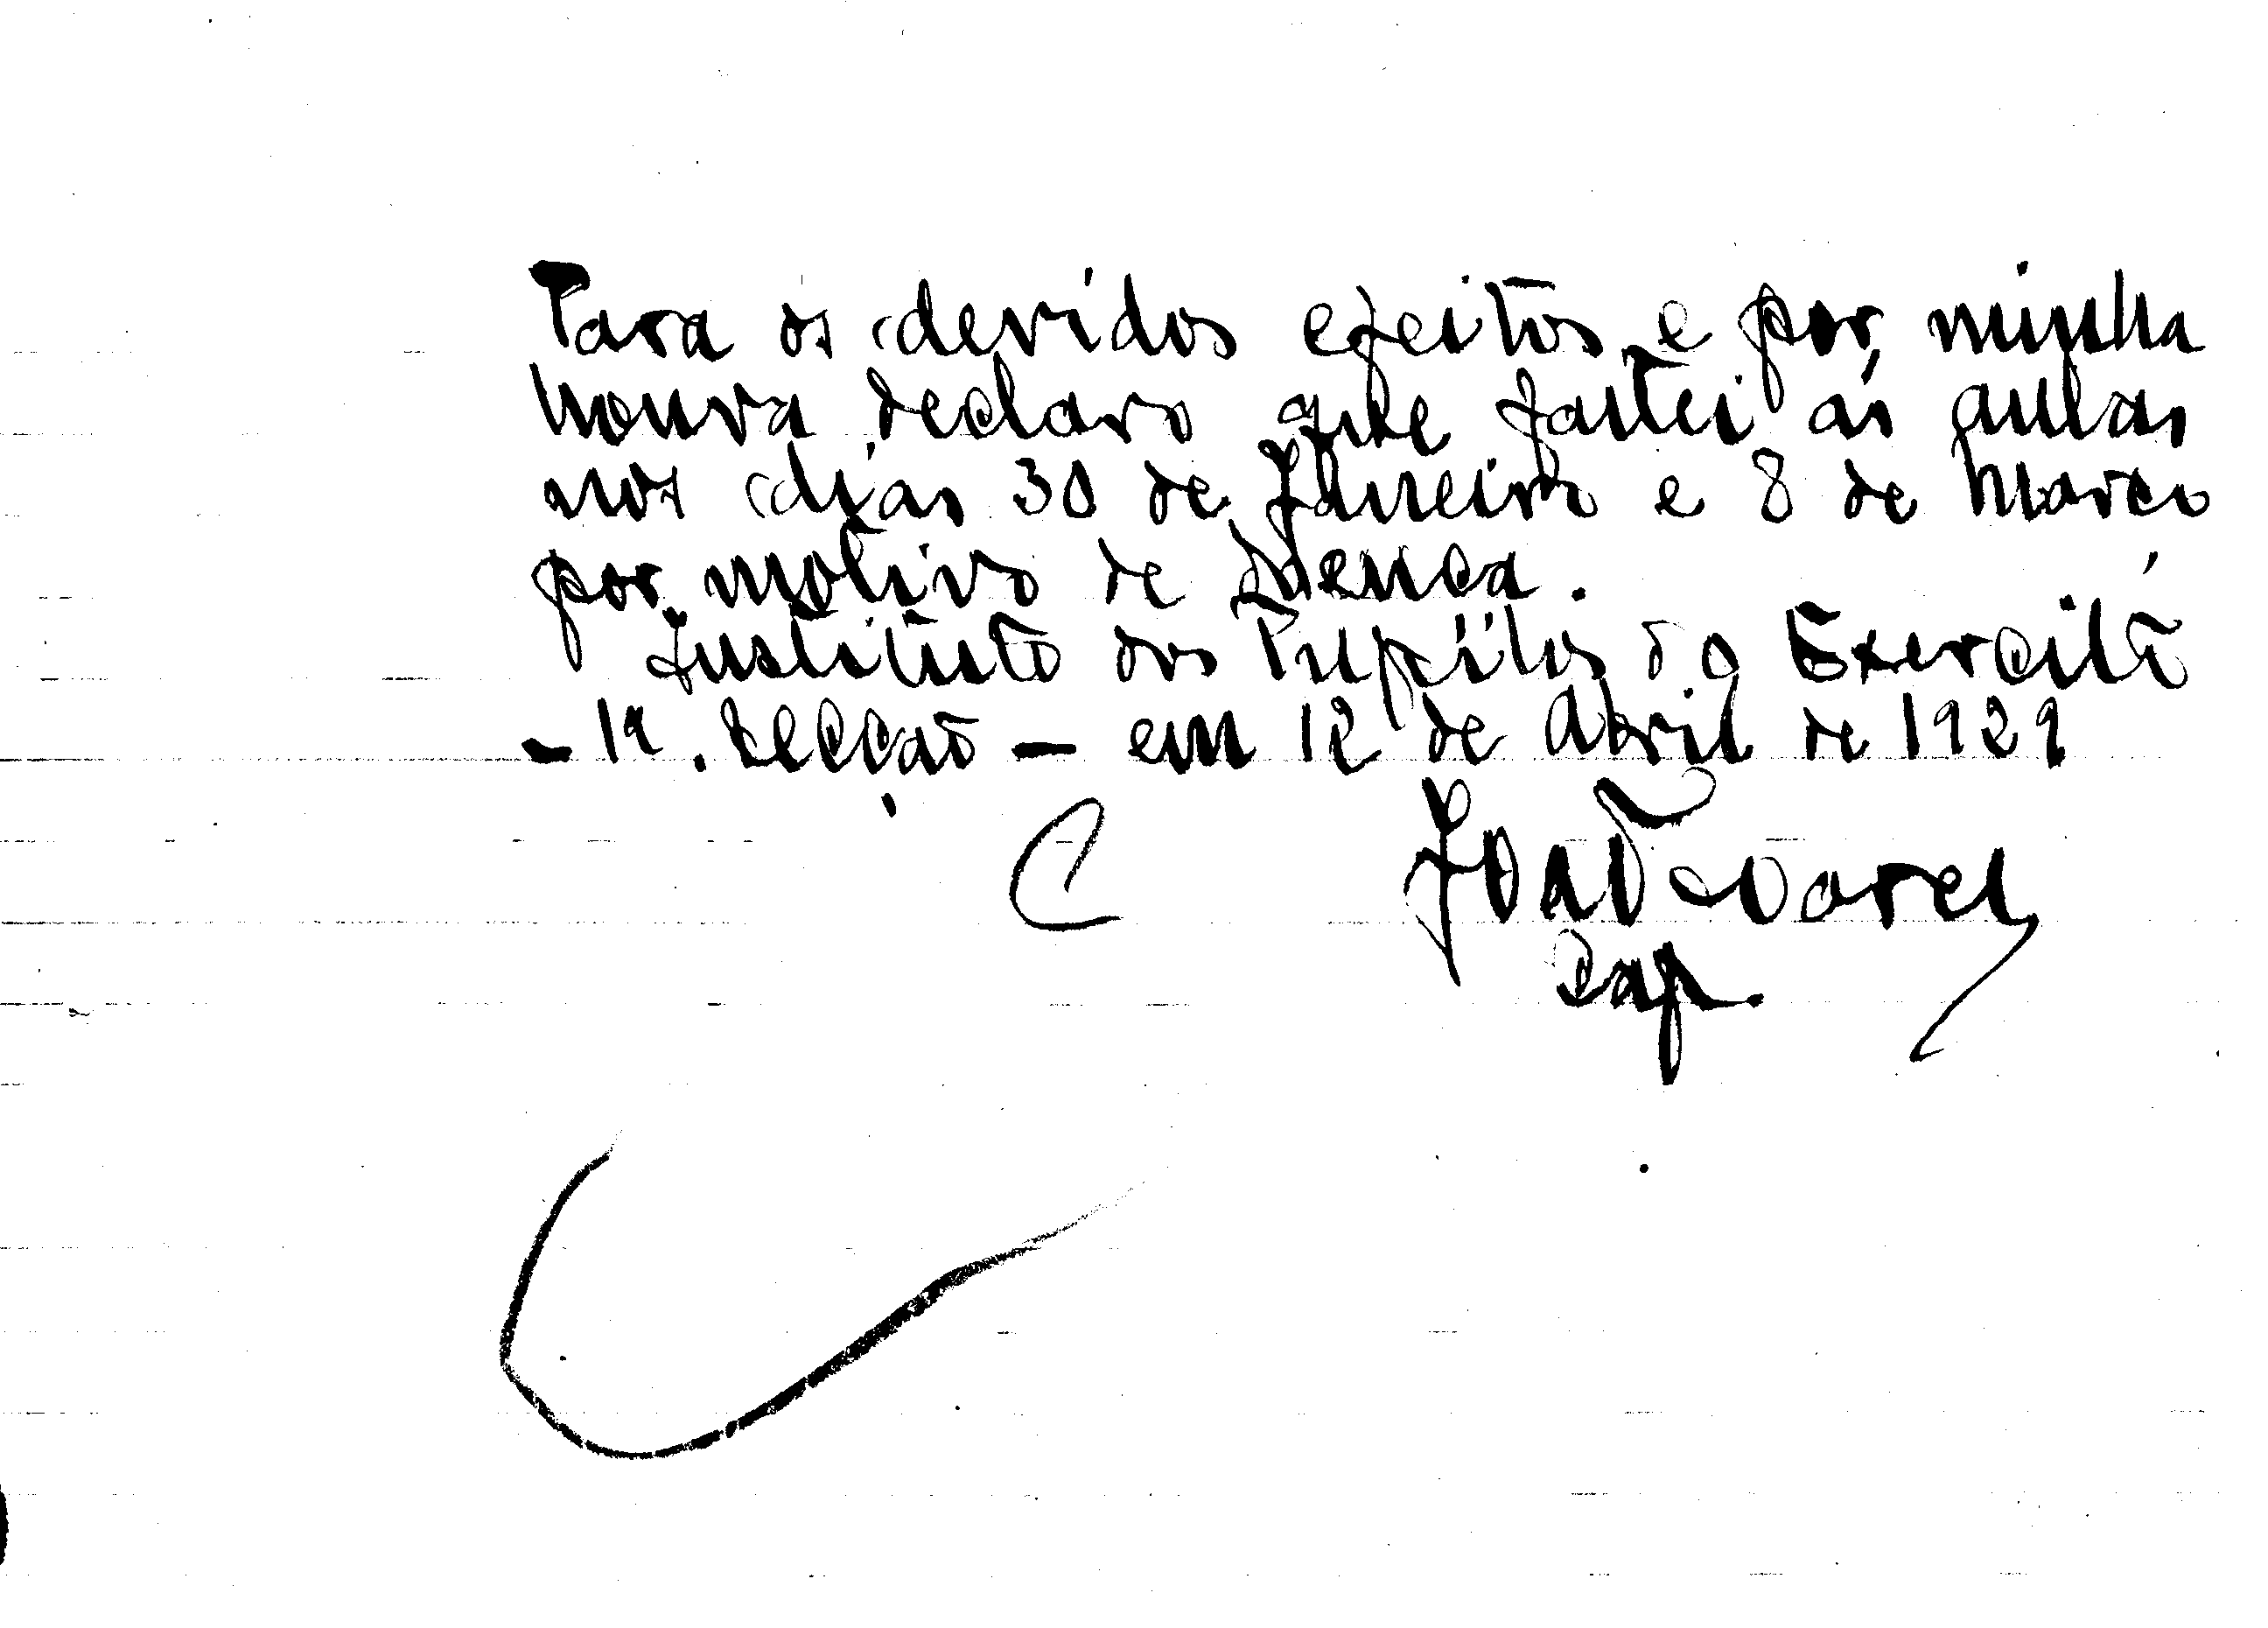 Para os devidos efeitos e por minha
honra declaro que faltei ás aulas
nos dias 30 de Janeiro e 8 de Março
por motivo de doença.
Instituto dos Pupilos do Exercito
- 1ª. Secção - em 12 de Abril de 1929
João Soares
Cap.